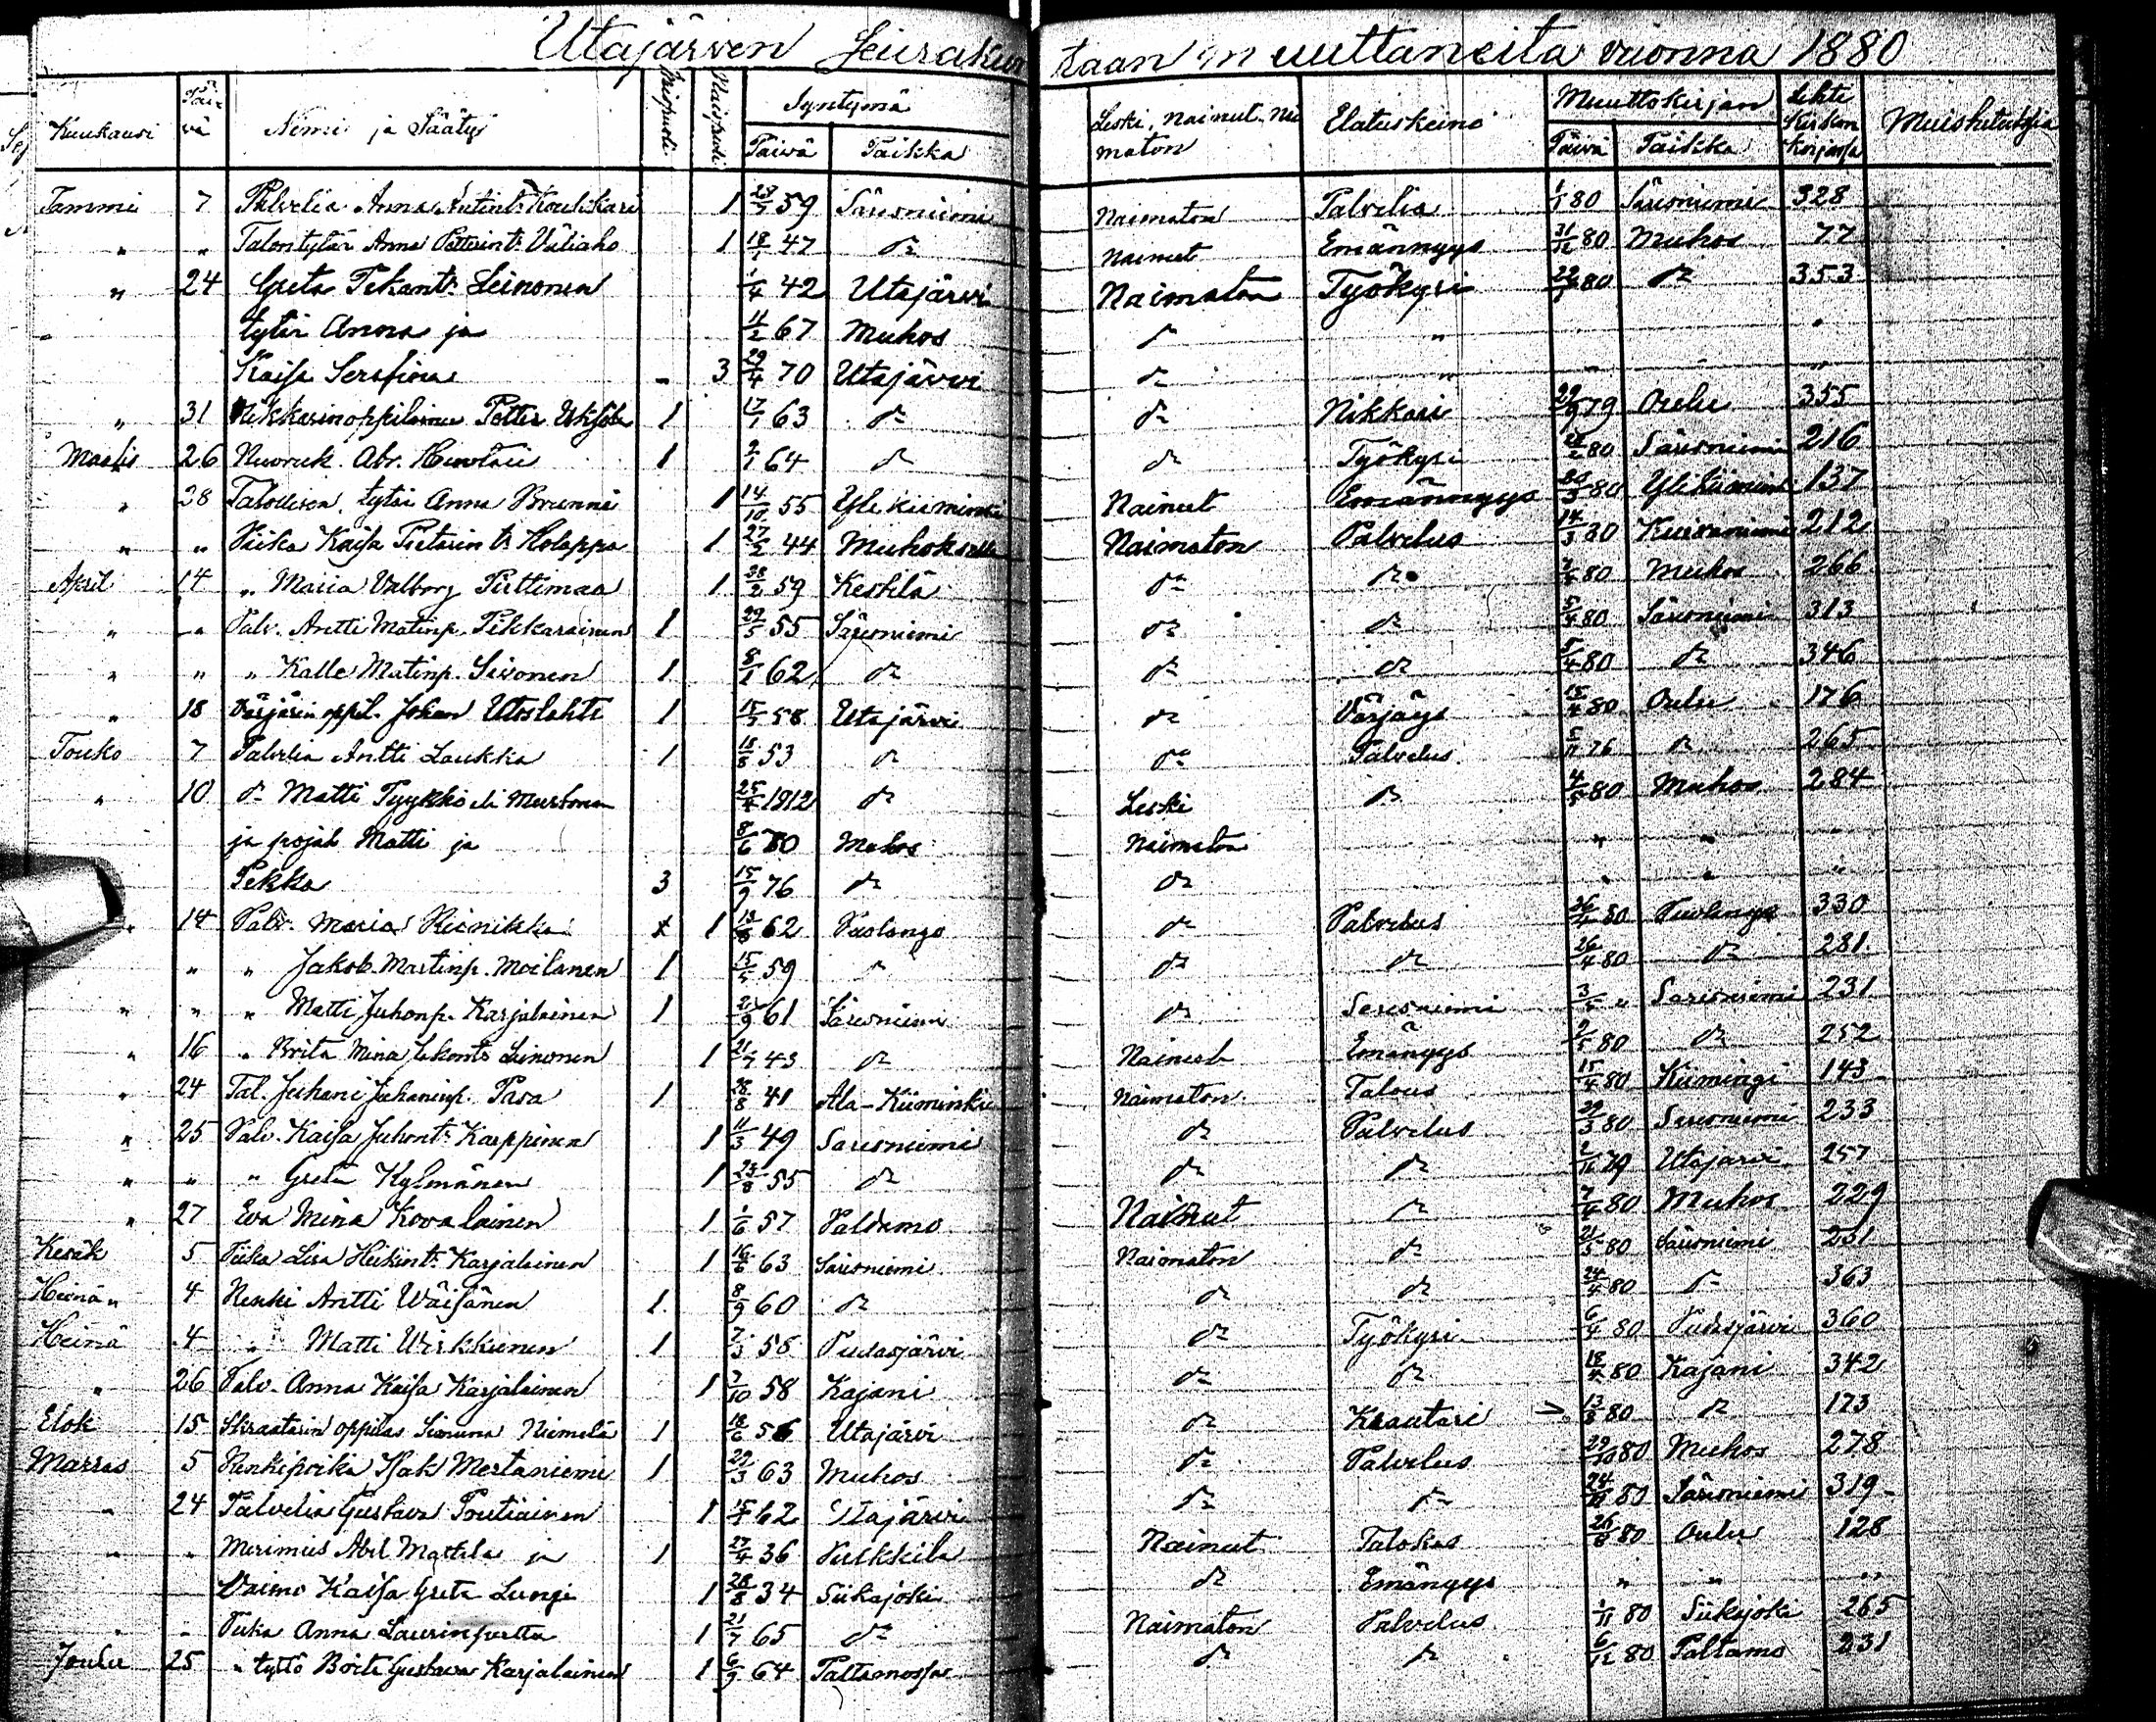 Utajärven Seurakuntaan muuttaneita vuonna 1880
Kuukausi Päivä Nimi ja Sääty Miespuoli Naispuoli Syntymä Päivä Paikka Leski, Nainut, Naimaton Elatuskeino Muuttokirjan Päivä Paikka Lehti Kirkonkirjassa Muistutuksia
Tammi 7 Palvelia Anna Antint. 1 59 Säresniemi Naimaton Palvelia 1/1 80 Säresniemi 328
" " Talontytär Anna Petterint. Väliaho 1 47 dº Nainut Emännyys 31/12 80 Muhos 77
" 24 Greta Pekant. Leinonen 1/4 42 Utajärvi Naimaton Työkyri 22/1 80 dº 353
" tytär Anna ja 11/2 67 Muhos dº " "
Kaisa Serafina - 3 29/4 70 Utajärvi dº " " " "
" 31 Nikkarinoppilainen Petter 1 17/1 63 dº dº Nikkari 79 Oulu 355
Maalis 26 Nuoruk. Abr. 1 2/1 64 dº dº Työkyri 80 Säresniemi 216
" 28 tytär Anna Brunni 1 14/10 55 Yli kiiminki Nainut Emännyys 20/3 80 Ylikiiminki 137
" " Piika Kaisa Pietarin tr Holappa 1 27/2 44 Muhoksella Naimaton Palvelus 14/3 80 Kuivaniemi 212
April 14 " Maria Valborg Pirttimaa 1 28/2 59 Kestilä dº dº 80 Muhos 266
" " Palv. Antti Matinp. Pikkarainen 1 29/5 55 Säresniemi dº dº 5/4 80 Säresniemi 313
" " " Kalle Matinp. Sivonen 1 8/1 62 dº dº dº 5/4 80 dº 346
" 18 Värjärin oppil. Johan Utoslahti 1 58 Utajärvi dº Värjäys 15/4 80 Oulu 176
Touko 7 Palvelia Antti Laukka 1 18/8 53 dº dº Palvelus 5/11 76 dº 265
" 10 dº Matti Tyykkö eli Mustonen 25/4 1812 dº Leski dº 4/5 80 Muhos 284
ja pojat Matti ja 8/6 70 Muhos Naimaton " " "
Pekka 3 15/9 76 dº dº " " "
" 14 Palv. Maria 1 62 Puolango dº Palvelus 26/4 80 Puolango 330
" " Jakob Martinp. Moilanen 1 59 " dº dº 26/4 80 dº 281
" " " Matti Juhonp. Karjalainen 1 61 Säresniemi dº Saresniemi 3/5 " Saresniemi 231
" 16 " Brita Mina Leinonen 1 43 dº Nainut Emänyys 2/5 80 dº 252
" 24 Tal. Juhani Juhaninp. Pasa 1 28/8 41 Ala-Kiiminki Naimaton Talous 15/4 80 Kiimingi 143
" 25 Palv. Kaisa Juhont. Karppinen 1 11/3 49 Saresniemi dº Palvelus 29/3 80 Saresniemi 233
" " " Greta Kylmänen 1 23/8 55 dº dº dº 79 Utajarvi 257
" 27 Eva Mina Kovalainen 1 1/6 57 Paldamo Nainut dº 80 Muhos 229
Kesäk 5 Piika Lisa Heikint. Karjalainen 1 63 Säresniemi Naimaton dº 21/5 80 Säresniemi 231
Heinä " 4 Renki Antti Wäisänen 1 8/9 60 dº dº dº 24/4 80 dº 363
Heinä 4 " Matti Wirkkunen 1 58 Pudasjärvi dº Työkyri 6/4 80 Pudasjärvi 360
" 26 Palv. Anna Kaisa Karjalainen 1 58 Kajani dº dº 80 Kajani 342
Elok 15 Skraatarin oppilas Simuna Niemelä 1 18/6 56 Utajärvi dº Kraatari 13/8 80 dº 173
Marras 5 Renkipoika Isak Mertaniemi 1 29/3 63 Muhos dº Palvelus 29/10 80 Muhos 278
" 24 Palvelia Gustava Poutiainen 1 62 Utajärvi dº dº 80 Säresniemi 319
" " Merimies Abel Mattila ja 1 27/4 36 Pulkkila Nainut Talokas 26/8 80 Oulu 128
Vaimo Kaisa Greta Lungi 1 28/8 34 Siikajoki dº Emänyys " " "
" " Piika Anna 1 21/7 65 dº Naimaton Palvelus 1/11 80 Siikajoki 265
Joulu 25 " tyttö Brita Gustava Karjalainen 1 6/9 64 Paltamossa dº dº 6/12 80 Paltamo 231